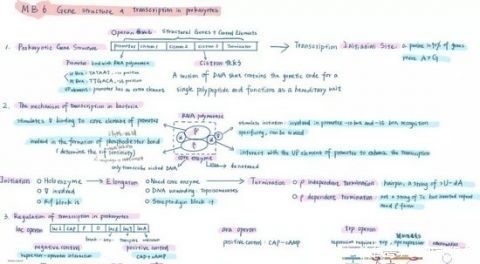 MB 6 Gene structure & transcription in prokaryotes
Operon: Structural Genes + Control Elements
1. Prokaryotic Gene Structure
Promoter Cistron 1 Cistron 2 Cistron 3 Terminator
Transcription Initiation Site: a purine in 90% of genes
more A>G
Promoter: bind with RNA polymerase
TATAAT, -10 position
TTGACA, -35 position
UP element: promoter has an extra element
Cistron
A section of DNA that contains the genetic code for a
single polypeptide and functions as a hereditary unit
2. The mechanism of transcription in bacteria
stimulates binding to core element of promoter
RNA polymerase
stimulate initiation, involved in promoter -10 box and -35 box recognition
specificity, can be reused
involved in the formation of phosphodiester bond
(determine the rif sensitivity)
interact with the UP element of promoter to enhance the transcription
core enzyme
only transcribe nicked DNA
Initiation
Holoenzyme
involved
Rif block it
Elongation
Need core enzyme
DNA unwinding: Topoisomerases
Streptolydigin block it
Termination
ρ independent termination: hairpin, a string of U-dA
ρ dependent termination: not a string of Ts but inverted repeat
need ρ factor
3. Regulation of transcription in prokaryotes
lac operon
lac I CAP P O lac Z lac Y lac A
negative control
repressor-operator interaction
positive control
CAP + cAMP
ara operon
positive control: CAP-cAMP
trp operon
repression requires: trp + aporepressor
attenuation